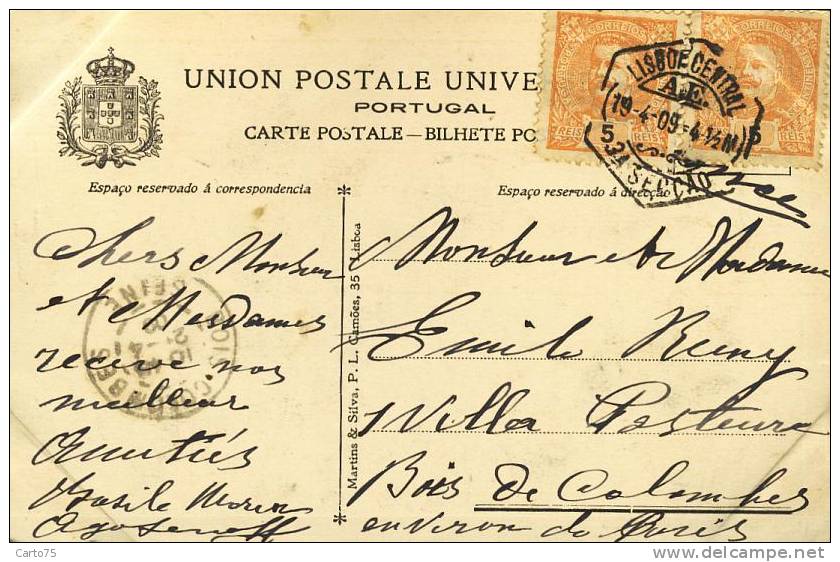 UNION POSTALE UNIVE
PORTUGAL
CARTE POSTALE — BILHETE PO
CORREIOS
CORREIOS
LISBOA CENTRAL
A.E.
19-4-09
4½
5
REIS
5
REIS
3A SECÇÃO
Espaço reservado á correspondencia
Espaço reservado á direcção
Chers Monsieur
et Mesdames
receve nos
meilleur
Amitiés
Martins & Silva, P. L. Camões, 35 - Lisboa
BOIS-COLOMBES
SEINE
Monsieur et Madame
Emile Remy
Villa Pasteure
Bois De Colombes
environ do Paris
Carto75
delcampe.net